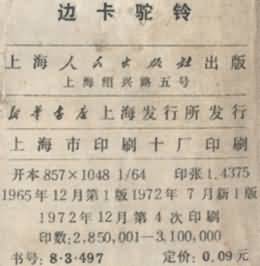 边卡驼铃
上海人民出版社出版
上海绍兴路五号
新华书店上海发行所发行
上海市印刷十厂印刷
开本 857×1048 1/64 印张 1.4375
1965年12月第1版 1972年7月新1版
1972年12月第4次印刷
印数:2,850,001—3,100,000
书号: 8·3·497 定价: 0.09元